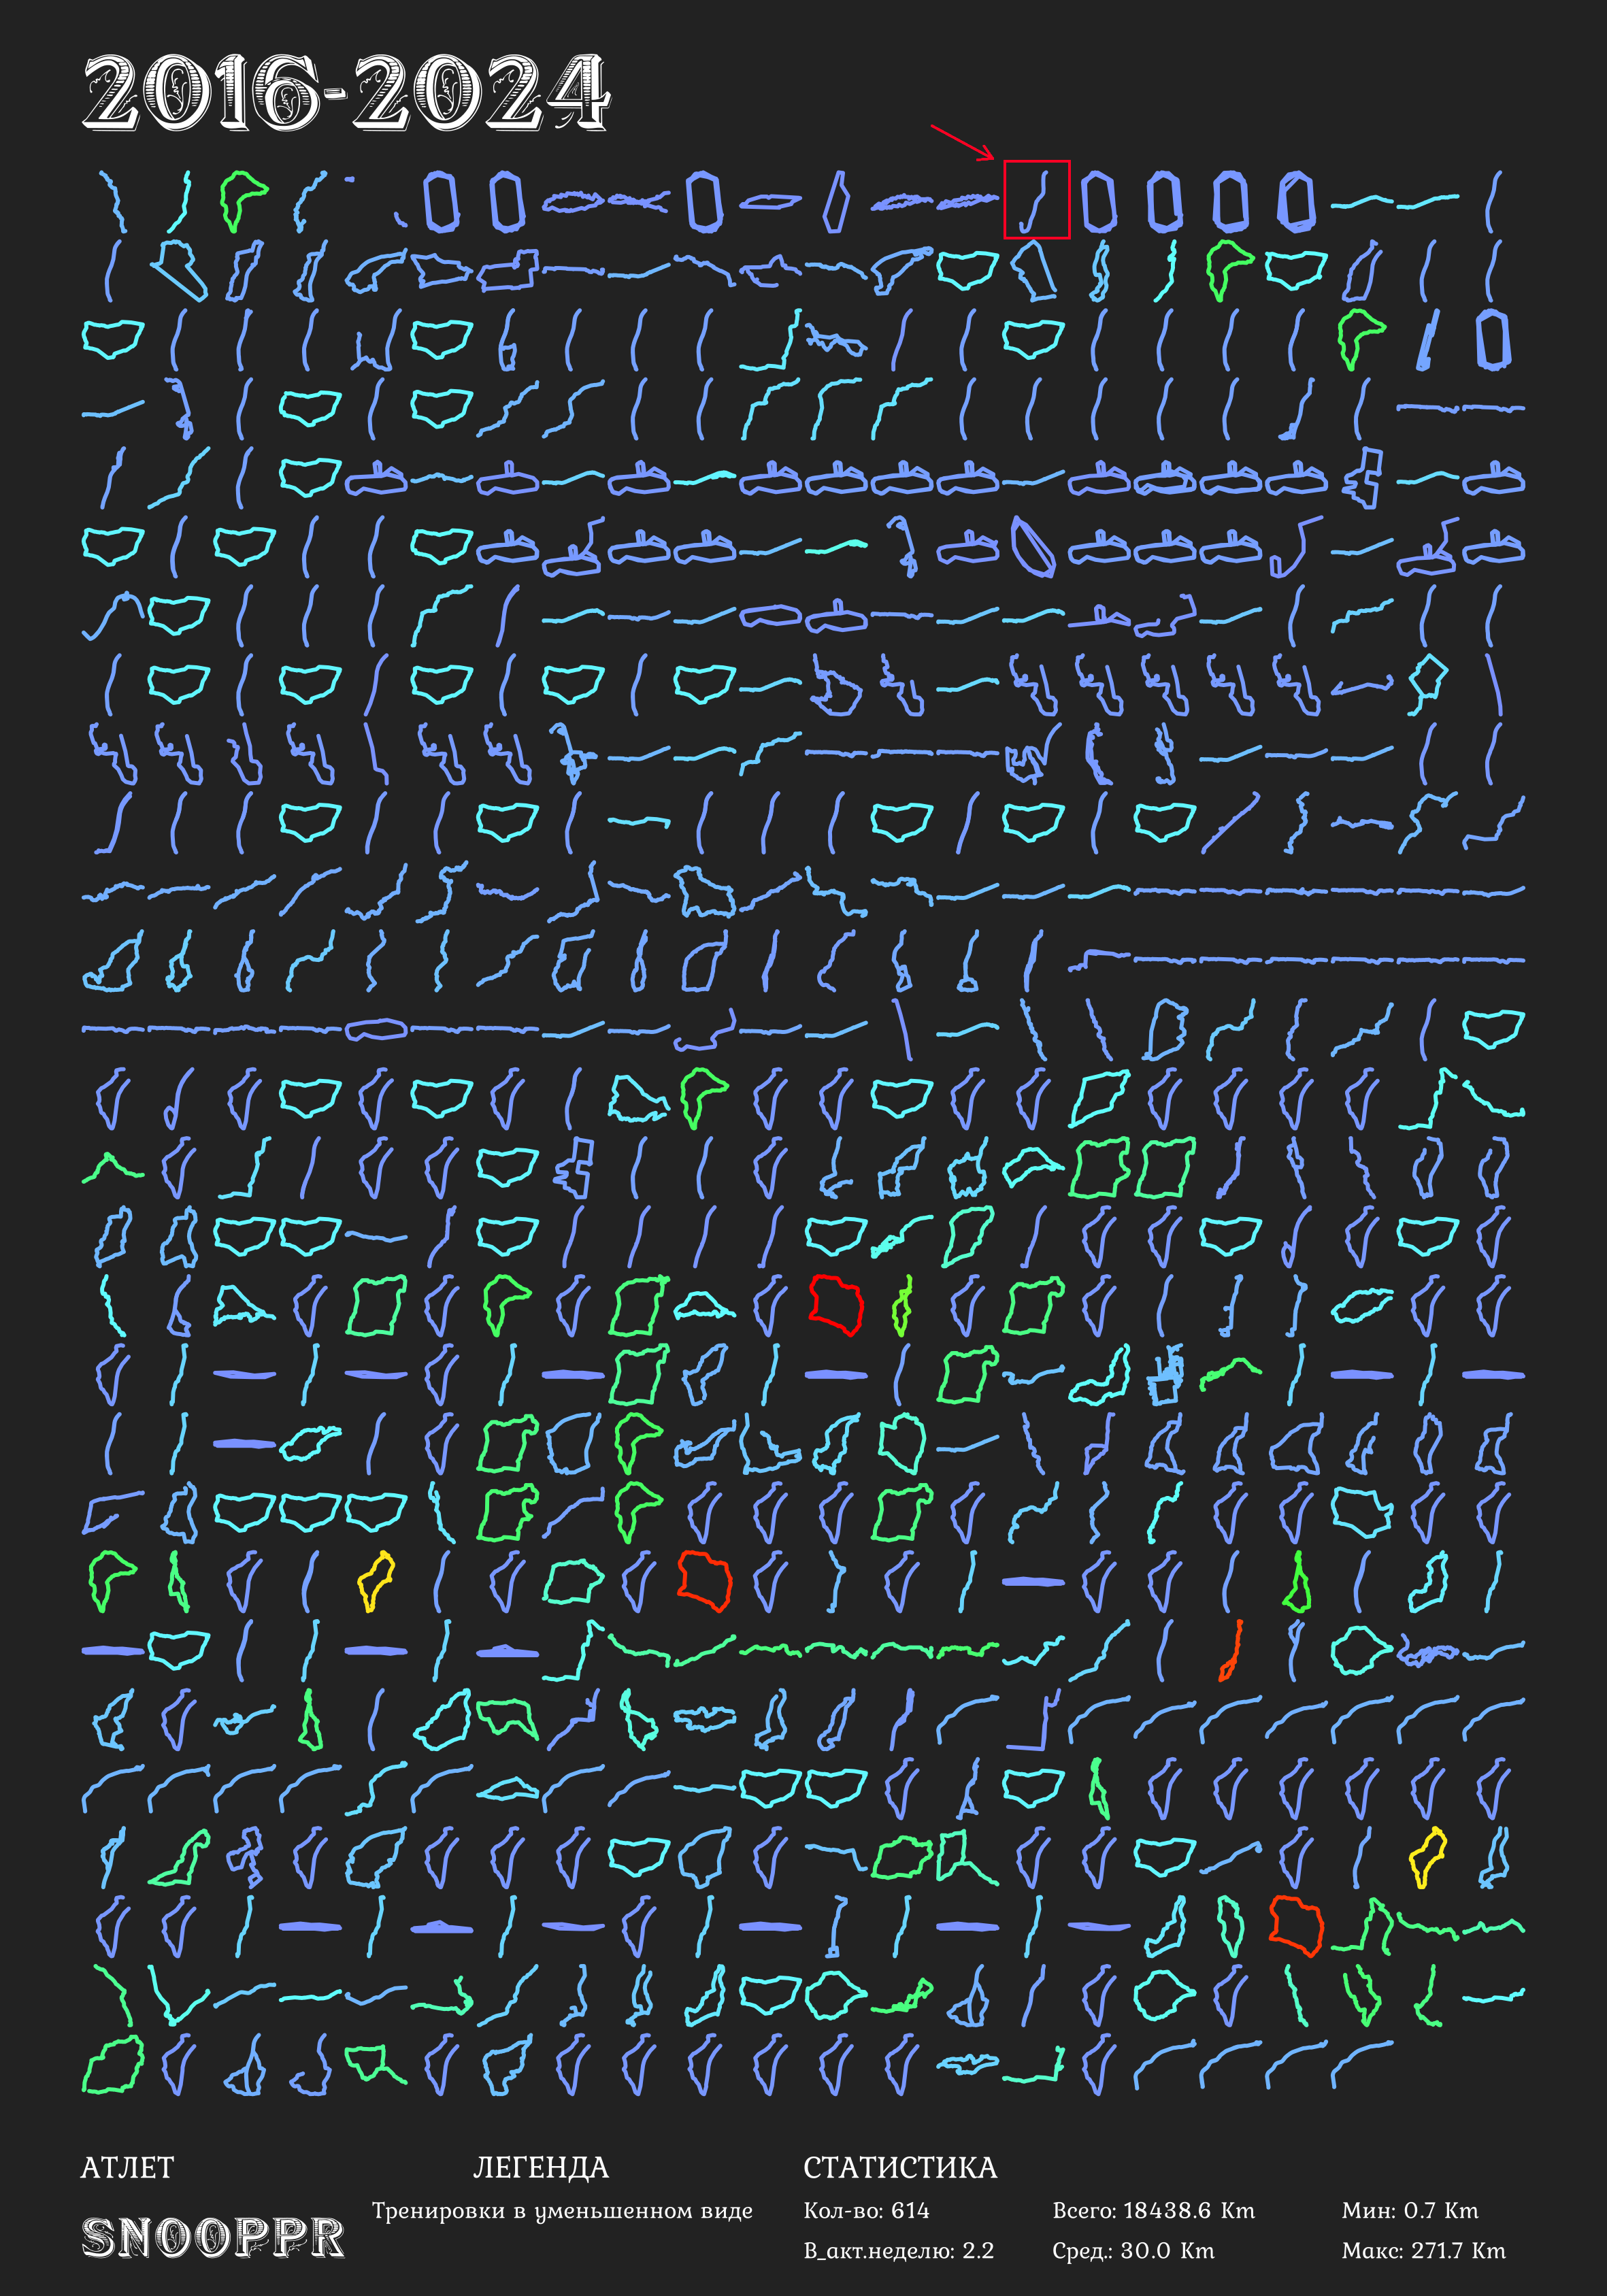 2016-2024
АТЛЕТ ЛЕГЕНДА СТАТИСТИКА
SNOOPPR
Тренировки в уменьшенном виде
Кол-во: 614 Всего: 18438.6 Km Мин: 0.7 Km
В_акт.неделю: 2.2 Сред.: 30.0 Km Макс: 271.7 Km